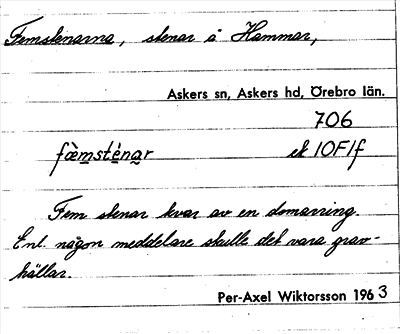 Femstenarna, stenar å Hammar,
Askers sn, Askers hd, Örebro län.
706
fòe̱m̱sté̱na̱r ek 10F1f
Fem stenar kvar av en domarring.
Enl. någon meddelare skulle det vara grav-
hällar.
Per-Axel Wiktorsson 1963